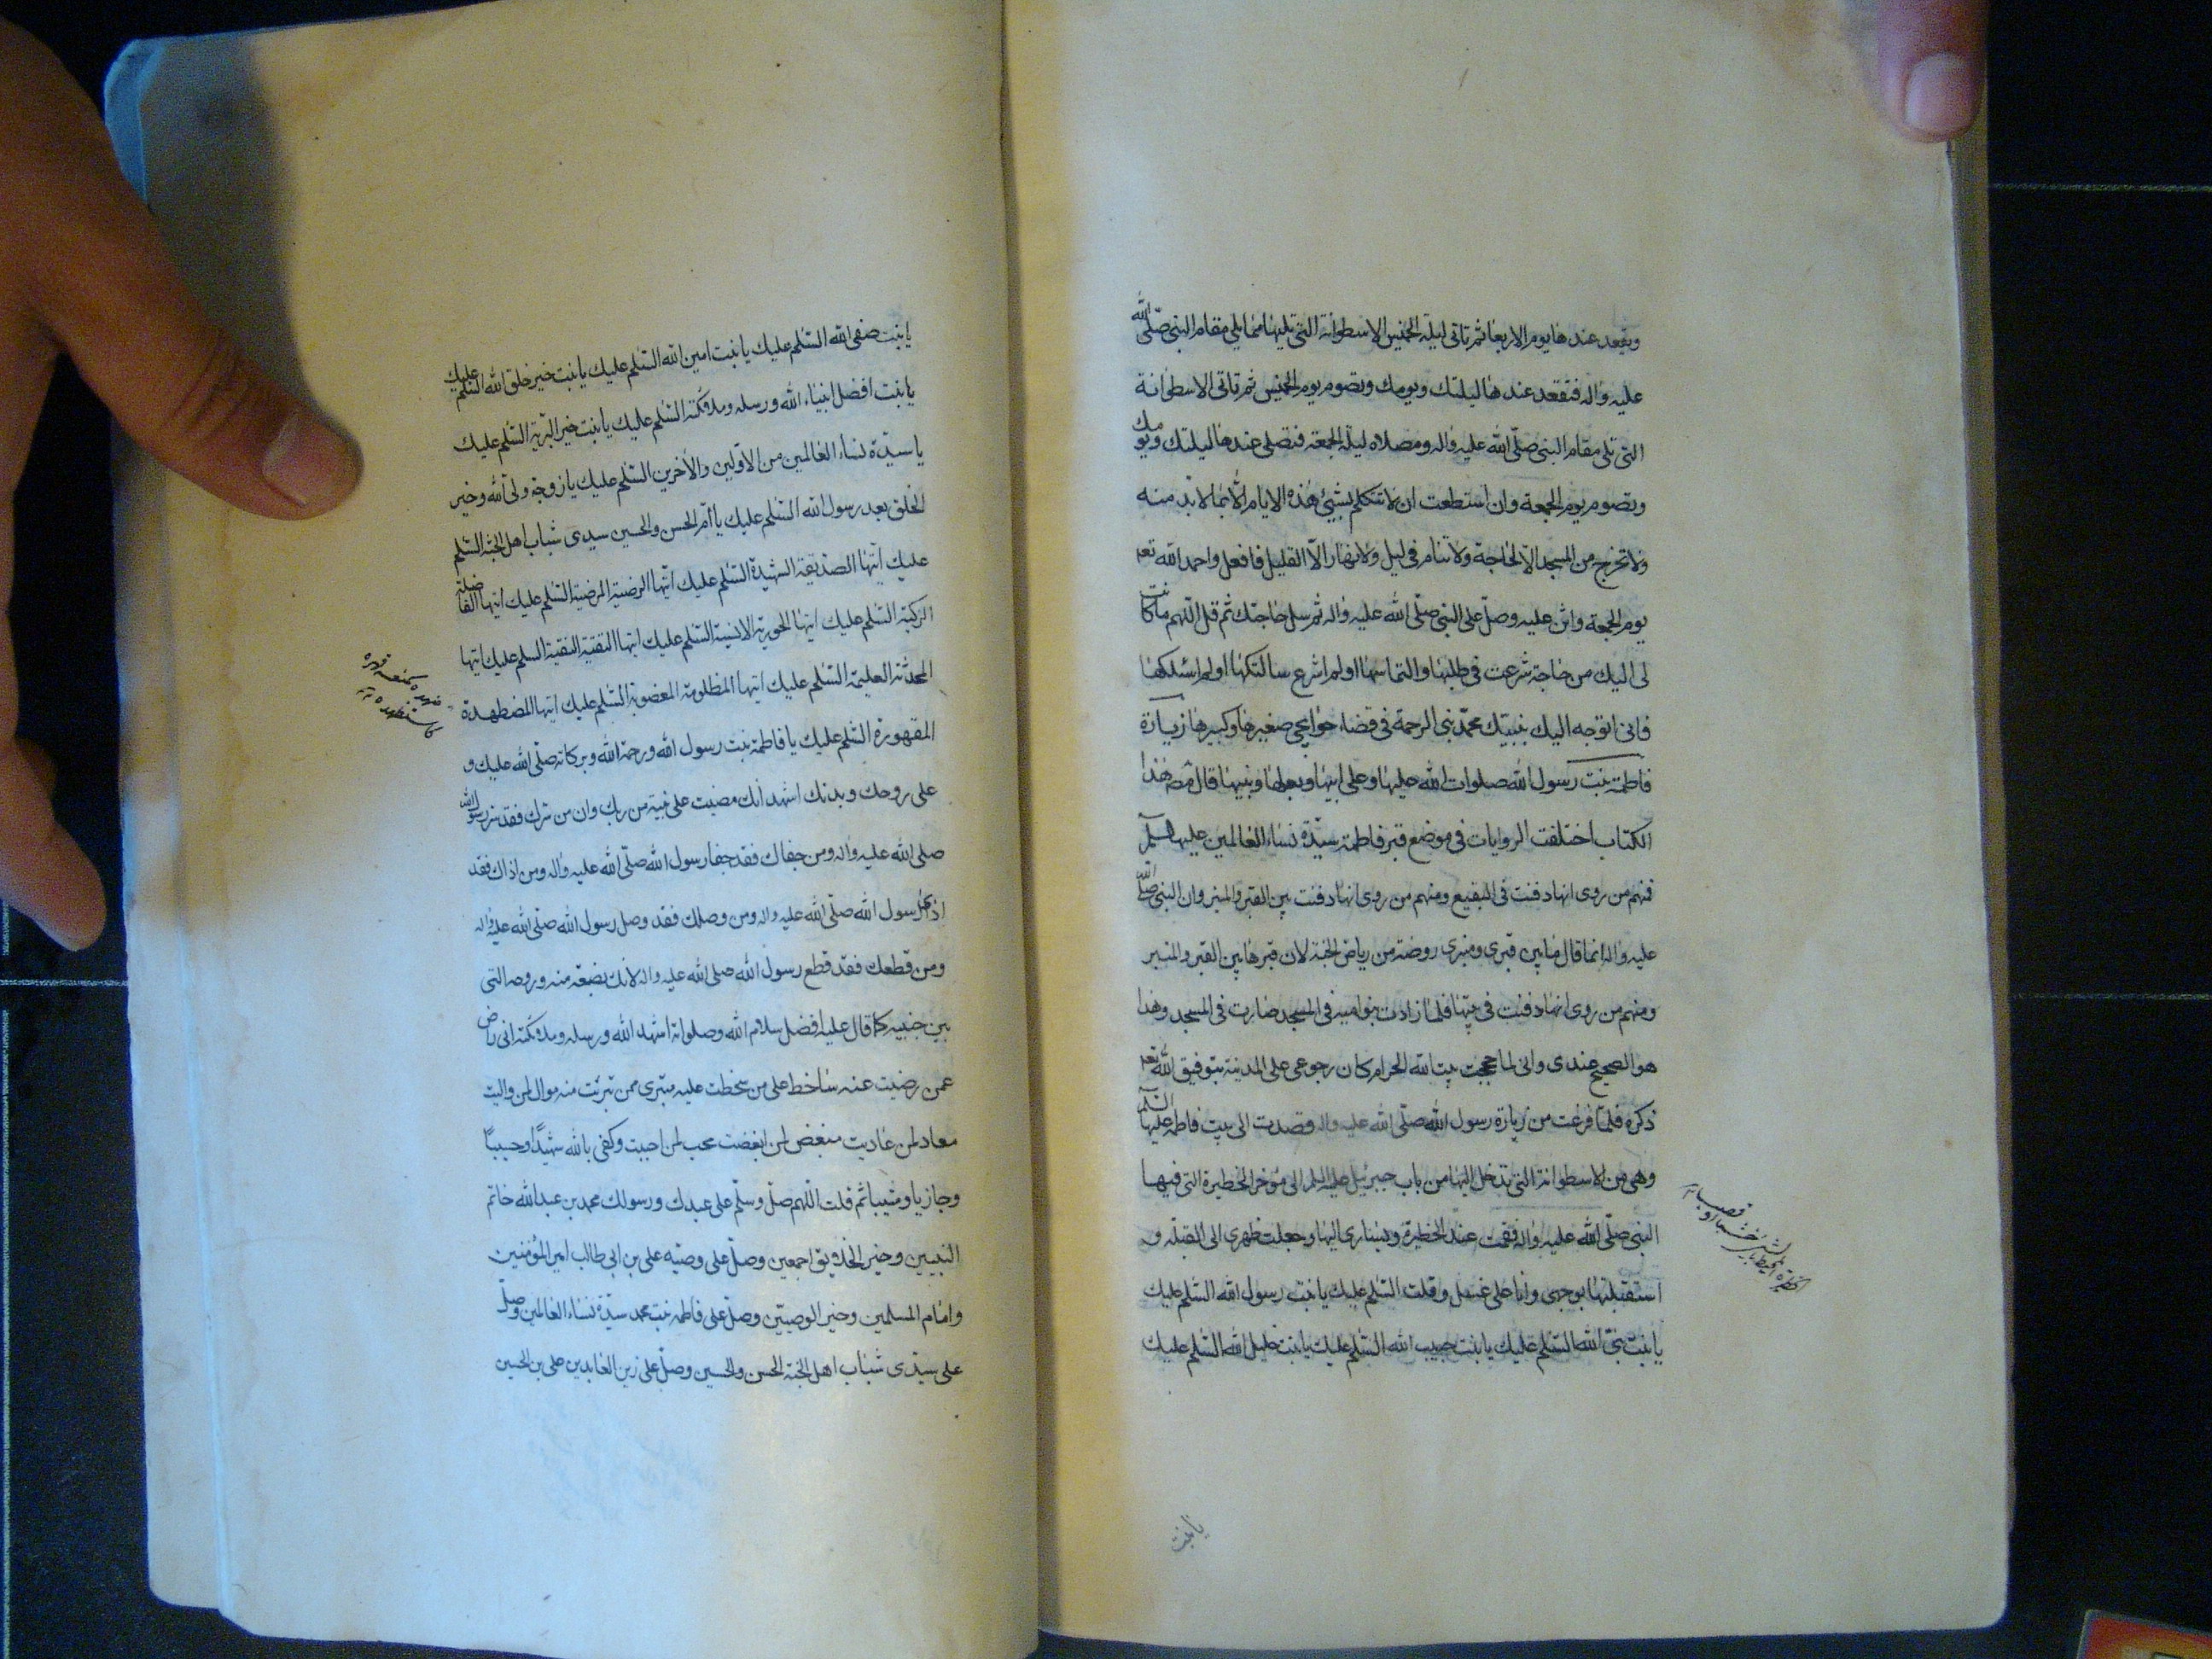 وتقعد عندها يوم الاربعا ثم تاتى ليلة الخميس الاسطوانة التى تليها مما يلى مقام النبى صلّى الله
عليه واله فتقعد عندها ليلتك ويومك وتصوم يوم الخميس ثم تاتى الاسطوانة
التى تلى مقام النبى صلّى الله عليه واله ومصلاه ليلة الجمعة فتصلى عندها ليلتك ويومك
وتصوم يوم الجمعة وان استطعت ان لا تتكلم بشيئ هذه الايام الّا بما لا بدّ منه
ولا تخرج من المسجد الّا لحاجة ولا تنام فى ليل ولا نهار الّا القليل فافعل واحمد الله تعه
يوم الجمعة واثن عليه وصلّ على النبى صلّى الله عليه واله ثم سل حاجتك ثم قل اللّهم ما كانت
لى اليك من حاجة شرعت فى طلبها والتماسها اولم اشرع سالتكها اولم اسئلكها
فانى اتوجه اليك بنبيّك محمّد نبى الرحمة فى قضاء حوايجى صغيرها وكبيرها زيارة
فاطمة بنت رسول الله صلوات الله عليها وعلى ابيها وبعلها وبنيها قال مص هذا
الكتاب اختلفت الروايات فى موضع قبر فاطمة سيّدة نساء العالمين عليها السلم
فمنهم من روى انها دفنت فى البقيع ومنهم من روى انها دفنت بين القبر والمنبر وان النبى صلّى الله
عليه واله انما قال ما بين قبرى ومنبرى روضة من رياض الجنة لان قبرها بين القبر والمنبر
ومنهم من روى انها دفنت فى بيتها فلما زادت بنو امية فى المسجد صارت فى المسجد وهذا
هو الصحيح عندى وانى لما حججت بيت الله الحرام كان رجوعى على المدينة بتوفيق الله تعه
ذكره فلمّا فرغت من زيارة رسول الله صلّى الله عليه واله قصدت الى بيت فاطمة عليها السّلم
وهى من الاسطوانة التى تدخل اليها من باب جبرئيل عليه السلم الى مؤخر الحظيرة التى فيها
النبى صلّى الله عليه واله فقمت عند الحظيرة ويسارى اليها وجعلت ظهرى الى القبلة و
استقبلتها بوجهى وانا على غسل وقلت السّلم عليك يا بنت رسول الله السّلم عليك
يا بنت نبىّ الله السّلم عليك يا بنت حبيب الله السّلم عليك يا بنت خليل الله السّلم عليك
يا بنت
يا بنت صفى الله السّلم عليك يا بنت امين الله السّلم عليك يا بنت خير خلق الله السّلم عليك
يا بنت افضل انبياء الله ورسله وملائكته السّلم عليك يا بنت خير البريّة السّلم عليك
يا سيّدة نساء العالمين من الاوّلين والأخرين السّلم عليك يا زوجة ولىّ الله وخير
الخلق بعد رسول الله السّلم عليك يا أمّ الحسن والحسين سيدى شباب اهل الجنّة السّلم
عليك ايّتها الصدّيقة الشهيدة السّلم عليك ايّتها الرضيّة المرضيّة السّلم عليك ايّتها الفاضلة
الزكيّة السّلم عليك ايتها الحوريّة الانسيّة السّلم عليك ايتها التقيّة النقيّة السلم عليك ايتها
المحدّثة العليمة السّلم عليك ايتها المظلومة المغصوبة السّلم عليك ايتها المضطهدة
المقهورة السّلم عليك يا فاطمة بنت رسول الله ورحمة الله وبركاته صلّى الله عليك و
على روحك وبدنك اشهد انّك مضيت على بيّنة من ربك وان من سرّك فقد سرّ رسول الله
صلى الله عليه واله ومن جفاك فقد جفا رسول الله صلّى الله عليه واله ومن اذاك فقد
اذى رسول الله صلّى الله عليه واله ومن وصلك فقد وصل رسول الله صلّى الله عليه واله
ومن قطعك فقد قطع رسول الله صلى الله عليه واله لانك بضعة منه وروحه التى
بين جنبيه كما قال عليه افضل سلام الله وصلواته اشهد الله ورسله وملائكته انى راض
عمن رضيت عنه ساخط على من سخطت عليه متبرى ممن تبرئت منه موال لمن واليت
معاد لمن عاديت مبغض لمن ابغضت محب لمن احببت وكفى بالله شهيدًا وحسيبًا
وجازيا ومثيبا ثم قلت اللّهم صلّ وسلّم على عبدك ورسولك محمد بن عبد الله خاتم
النبيين وخير الخلايق اجمعين وصلّ على وصيّه على بن ابى طالب امير المؤمنين
وامام المسلمين وخير الوصيّين وصلّ على فاطمة بنت محمد سيّدة نساء العالمين وصلّ
على سيّدى شباب اهل الجنة الحسن والحسين وصلّ على زين العابدين على بن الحسين